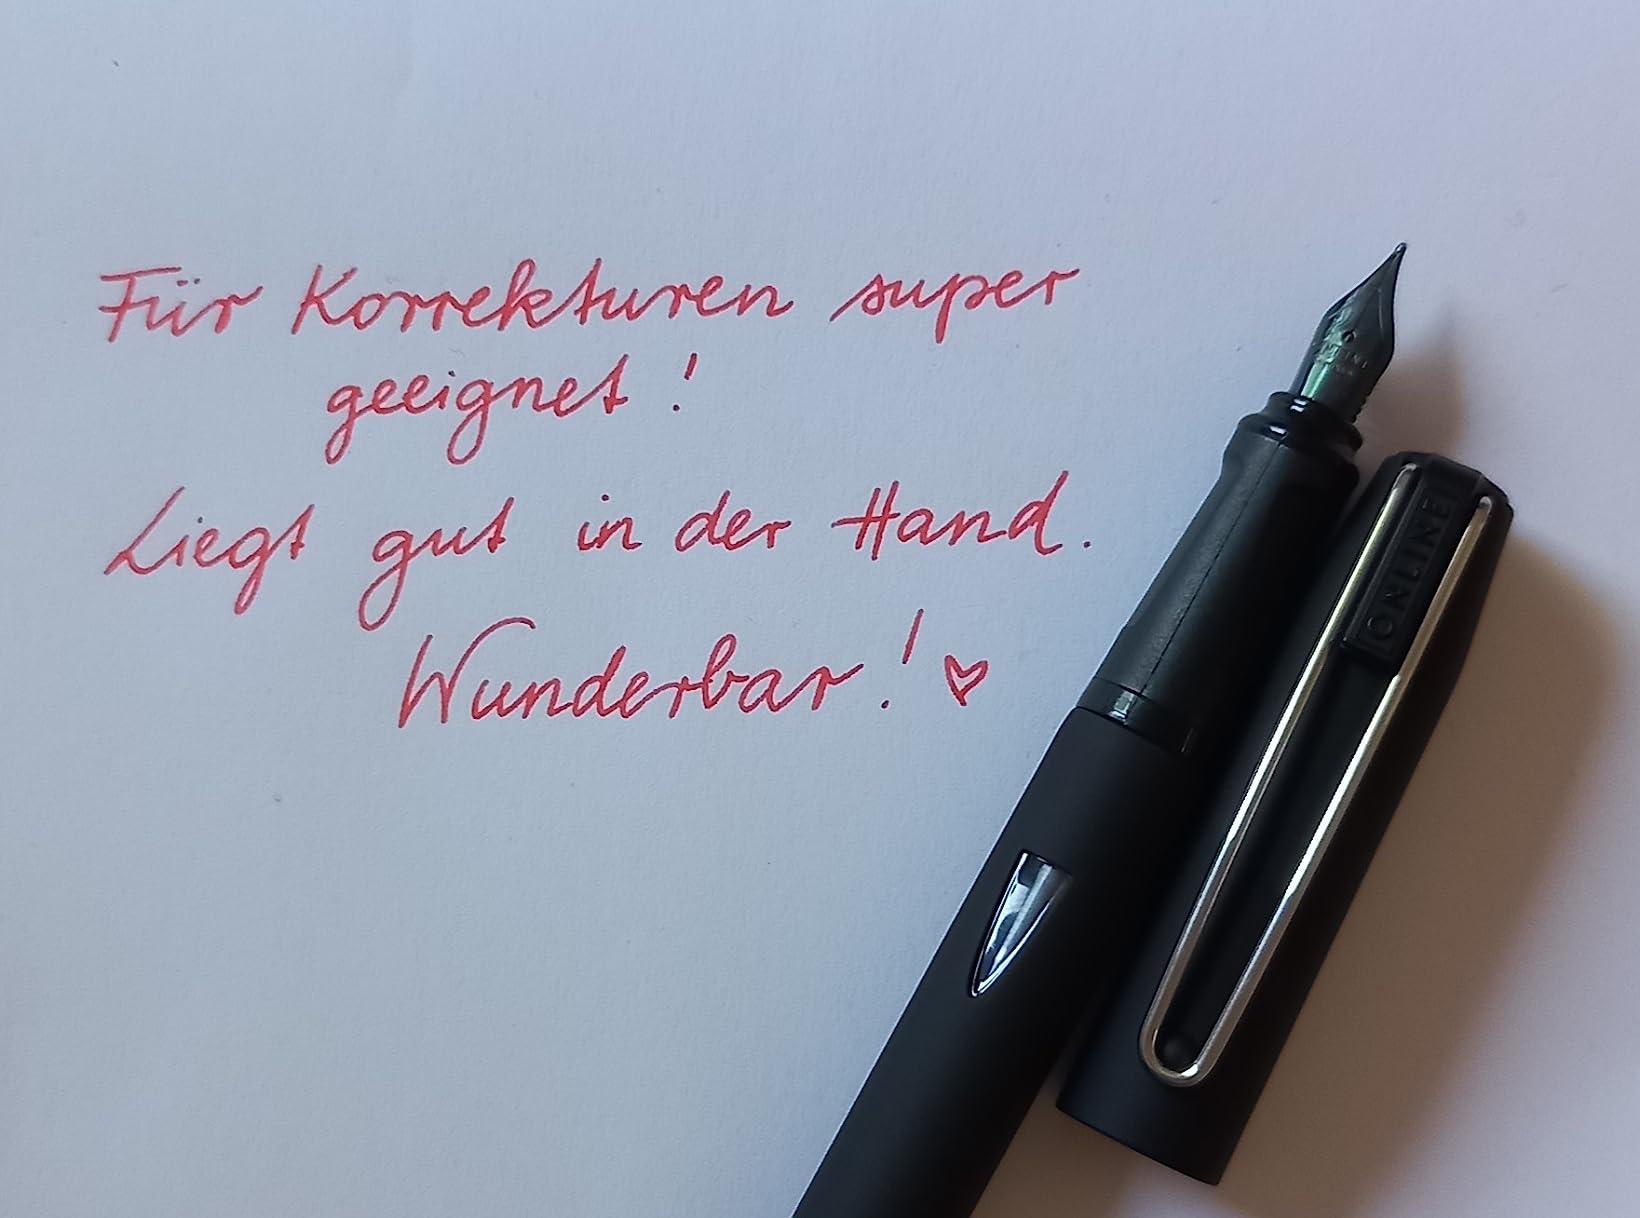 Für Korrekturen super
geeignet!
Liegt gut in der Hand.
Wunderbar! ♡
ONLINE